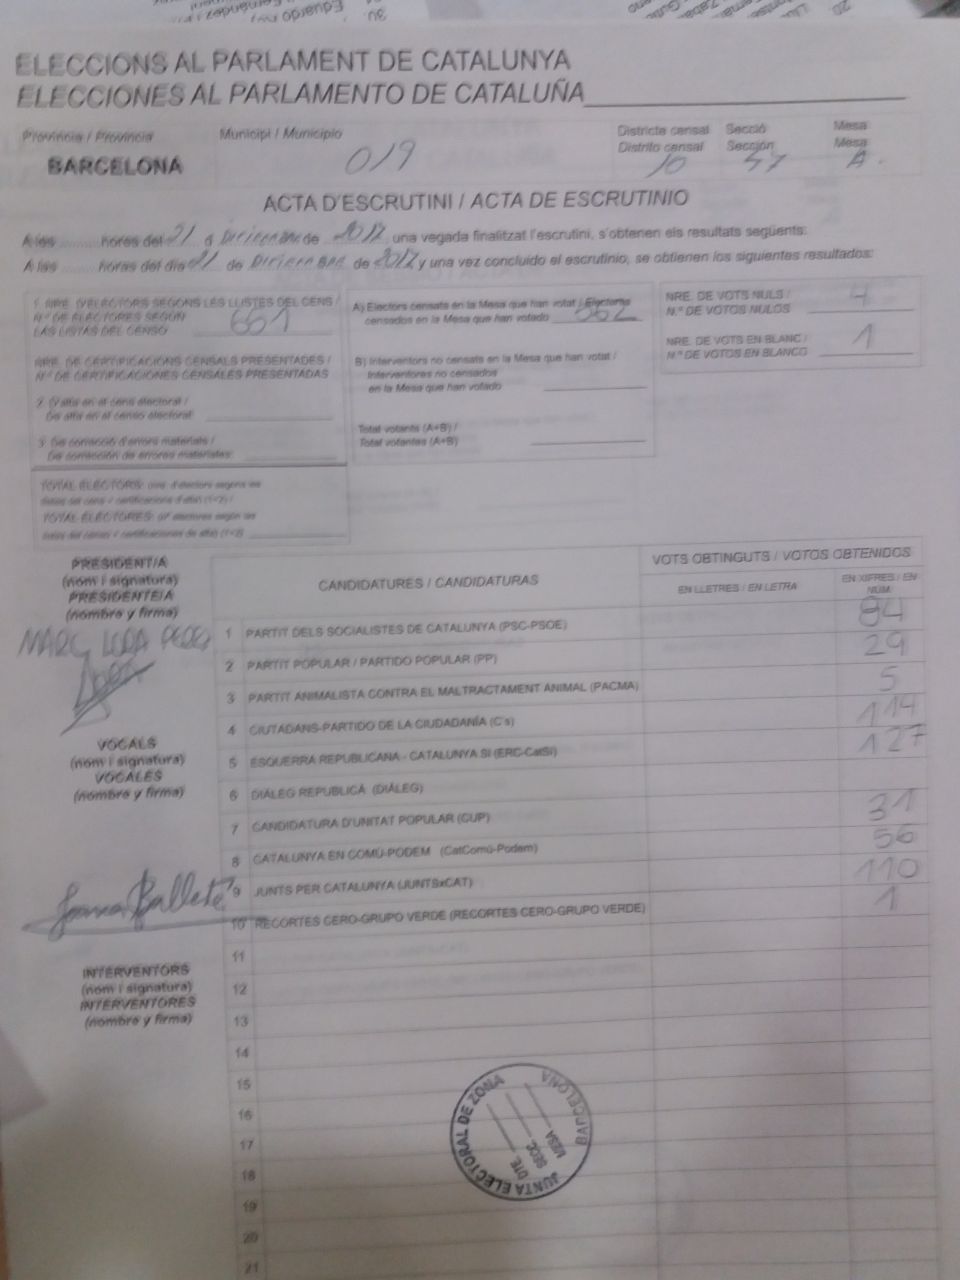 ELECCIONS AL PARLAMENT DE CATALUNYA
ELECCIONES AL PARLAMENTO DE CATALUÑA
Provincia / Provincia
BARCELONA
Municipi / Municipio
019
Districte censal
Distrito censal
10
Secció
Sección
Mesa
Mesa
A.
ACTA D'ESCRUTINI / ACTA DE ESCRUTINIO
A les .......... hores del 21 d Diciembre de 2017 una vegada finalitzat l'escrutini, s'obtenen els resultats següents:
A las .......... horas del día 21 de Diciembre de 2017 y una vez concluido el escrutinio, se obtienen los siguientes resultados:
1. NRE. D'ELECTORS SEGONS LES LLISTES DEL CENS /
N.º DE ELECTORES SEGÚN
LAS LISTAS DEL CENSO 661
NRE. DE CERTIFICACIONS CENSALS PRESENTADES /
N.º DE CERTIFICACIONES CENSALES PRESENTADAS
2. D'alta en el cens electoral /
De alta en el censo electoral:
3. De correcció d'errors materials /
De corrección de errores materiales:
TOTAL ELECTORS: nre. d'electors segons les
llistes del cens + certificacions d'altes (1+2) /
TOTAL ELECTORES: nº electores según las
listas del censo + certificaciones de altas (1+2)
A) Electors censats en la Mesa que han votat / Electores
censados en la Mesa que han votado 562
B) Interventors no censats en la Mesa que han votat /
Interventores no censados
en la Mesa que han votado
Total votants (A+B) /
Total votantes (A+B)
NRE. DE VOTS NULS /
N.º DE VOTOS NULOS 4
NRE. DE VOTS EN BLANC /
N.º DE VOTOS EN BLANCO 1
PRESIDENT/A
(nom i signatura)
PRESIDENTE/A
(nombre y firma)
VOCALS
(nom i signatura)
VOCALES
(nombre y firma)
INTERVENTORS
(nom i signatura)
INTERVENTORES
(nombre y firma)
CANDIDATURES / CANDIDATURAS
VOTS OBTINGUTS / VOTOS OBTENIDOS
EN LLETRES / EN LETRA
EN XIFRES / EN NÚM.
1 PARTIT DELS SOCIALISTES DE CATALUNYA (PSC-PSOE) 84
2 PARTIT POPULAR / PARTIDO POPULAR (PP) 29
3 PARTIT ANIMALISTA CONTRA EL MALTRACTAMENT ANIMAL (PACMA) 5
4 CIUTADANS-PARTIDO DE LA CIUDADANÍA (C's) 114
5 ESQUERRA REPUBLICANA - CATALUNYA SÍ (ERC-CatSí) 127
6 DIÀLEG REPUBLICÀ (DIÀLEG)
7 CANDIDATURA D'UNITAT POPULAR (CUP) 31
8 CATALUNYA EN COMÚ-PODEM (CatComú-Podem) 56
9 JUNTS PER CATALUNYA (JUNTSxCAT) 110
10 RECORTES CERO-GRUPO VERDE (RECORTES CERO-GRUPO VERDE) 1
11
12
13
14
15
16
17
18
19
20
21
JUNTA ELECTORAL DE ZONA
BARCELONA
DTE.
SECC.
MESA